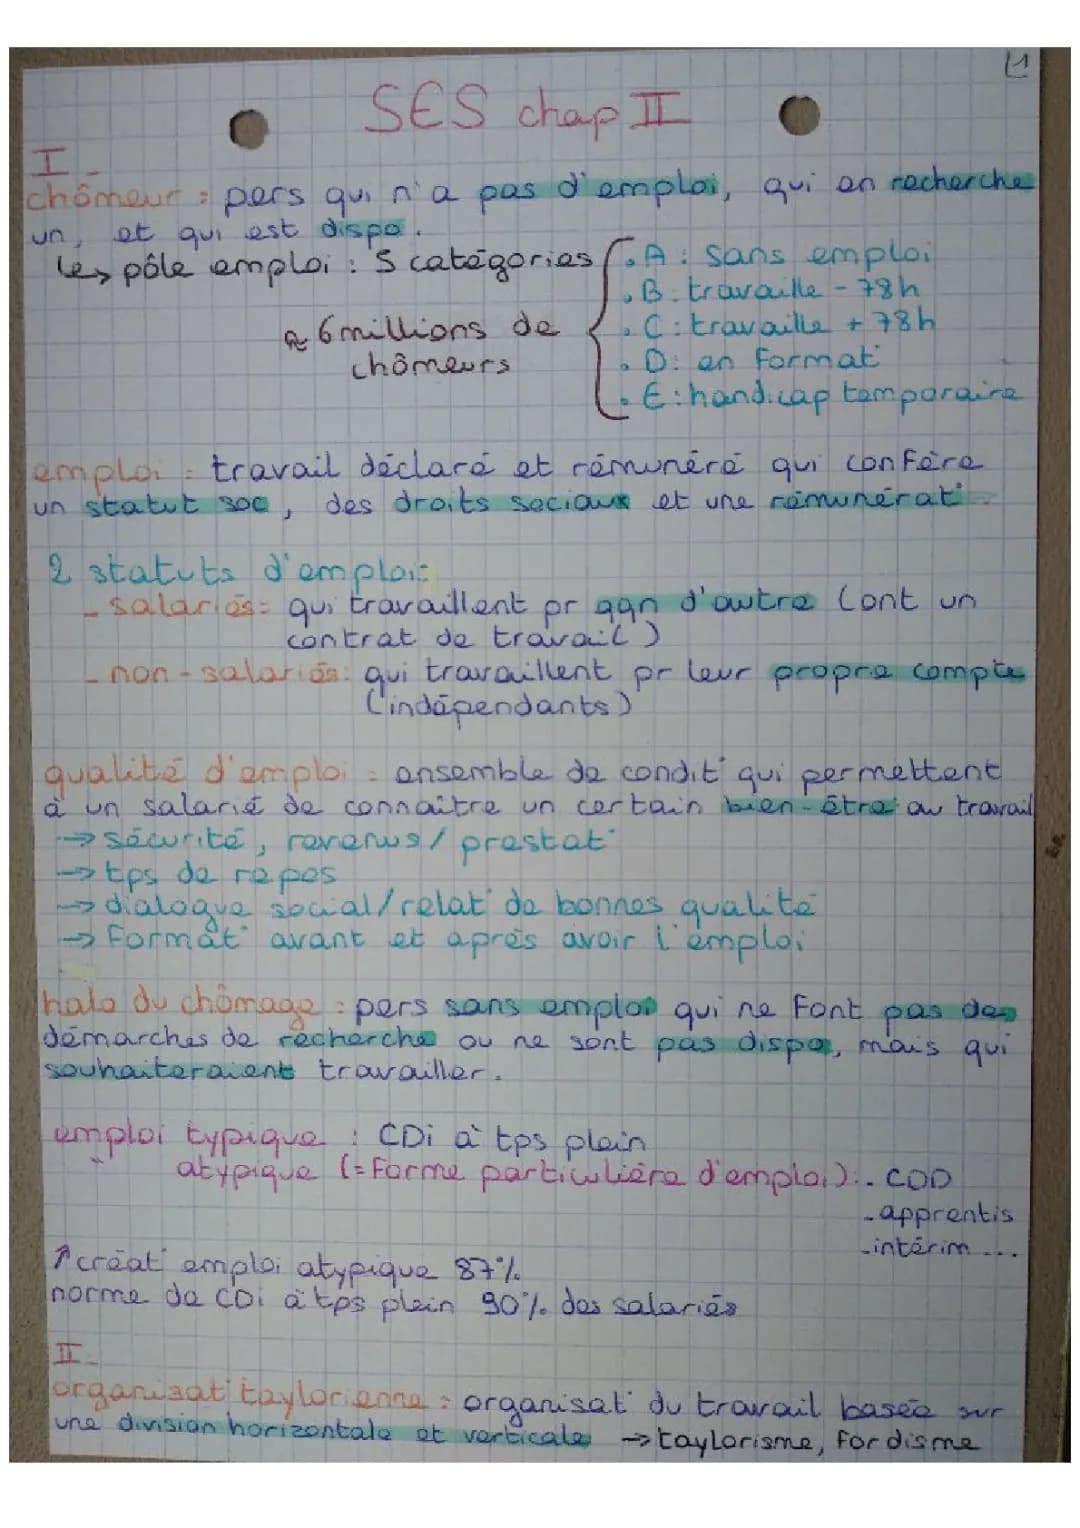 1
SES chap II
I -
chômeur : pers qui n'a pas d'emploi, qui en recherche
un, et qui est dispo.
↳ pôle emploi : 5 catégories
. A : sans emploi
. B : travaille - 78h
. C : travaille + 78h
. D : en format°
. E : handicap temporaire
≈ 6 millions de
chômeurs
emploi : travail déclaré et rémunéré qui confère
un statut soc, des droits sociaux et une rémunérat°.
2 statuts d'emploi :
- salariés : qui travaillent pr qqn d'autre (ont un
contrat de travail)
- non-salariés : qui travaillent pr leur propre compte
(indépendants)
qualité d'emploi : ensemble de condit° qui permettent
à un salarié de connaître un certain bien-être au travail
→ sécurité, revenus / prestat°
→ tps de repos
→ dialogue social/relat° de bonnes qualité
→ format° avant et après avoir l'emploi
halo du chômage : pers sans emploi qui ne font pas des
démarches de recherche ou ne sont pas dispo, mais qui
souhaiteraient travailler.
emploi typique : CDi à tps plein
atypique (= forme particulière d'emploi) : - CDD
- apprentis
- intérim ...
↑ créat° emploi atypique 87%
norme de CDi à tps plein 90% des salariés
II -
organisat° taylorienne : organisat° du travail basée sur
une division horizontale et verticale → taylorisme, fordisme